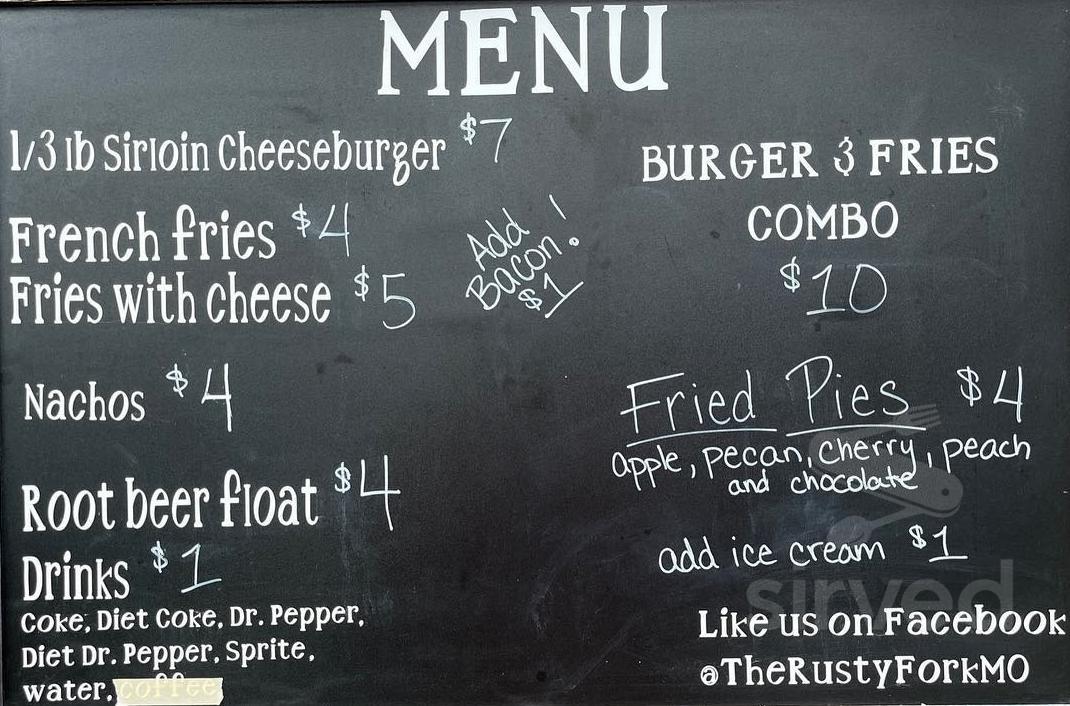 MENU
1/3 lb Sirloin Cheeseburger $7
French fries $4
Fries with cheese $5
Add
Bacon!
$1
Nachos $4
Root beer float $4
Drinks $1
Coke, Diet Coke, Dr. Pepper,
Diet Dr. Pepper, Sprite,
water, coffee
BURGER & FRIES
COMBO
$10
Fried Pies $4
apple, pecan, cherry, peach
and chocolate
add ice cream $1
sirved
Like us on Facebook
@TheRustyForkMO